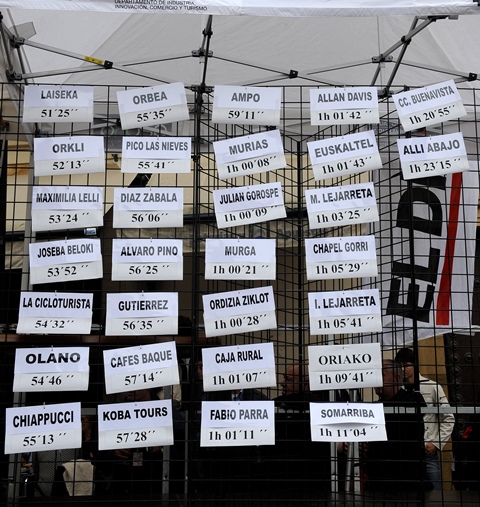 DEPARTAMENTO DE INDUSTRIA,
INNOVACIÓN, COMERCIO Y TURISMO
LAISEKA
51´25´´
ORKLI
52´13´´
MAXIMILIA LELLI
53´24´´
JOSEBA BELOKI
53´52´´
LA CICLOTURISTA
54´32´´
OLANO
54´46´´
CHIAPPUCCI
55´13´´
ORBEA
55´35´´
PICO LAS NIEVES
55´41´´
DIAZ ZABALA
56´06´´
ALVARO PINO
56´25´´
GUTIERREZ
56´35´´
CAFES BAQUE
57´14´´
KOBA TOURS
57´28´´
AMPO
59´11´´
MURIAS
1h 00´08´´
JULIAN GOROSPE
1h 00´09´´
MURGA
1h 00´21´´
ORDIZIA ZIKLOT
1h 00´28´´
CAJA RURAL
1h 01´07´´
FABIO PARRA
1h 01´11´´
ALLAN DAVIS
1h 01´42´´
EUSKALTEL
1h 01´43´´
M. LEJARRETA
1h 03´25´´
CHAPEL GORRI
1h 05´29´´
I. LEJARRETA
1h 05´41´´
ORIAKO
1h 09´41´´
SOMARRIBA
1h 11´04´´
CC. BUENAVISTA
1h 20´55´´
ALLI ABAJO
1h 23´15´´